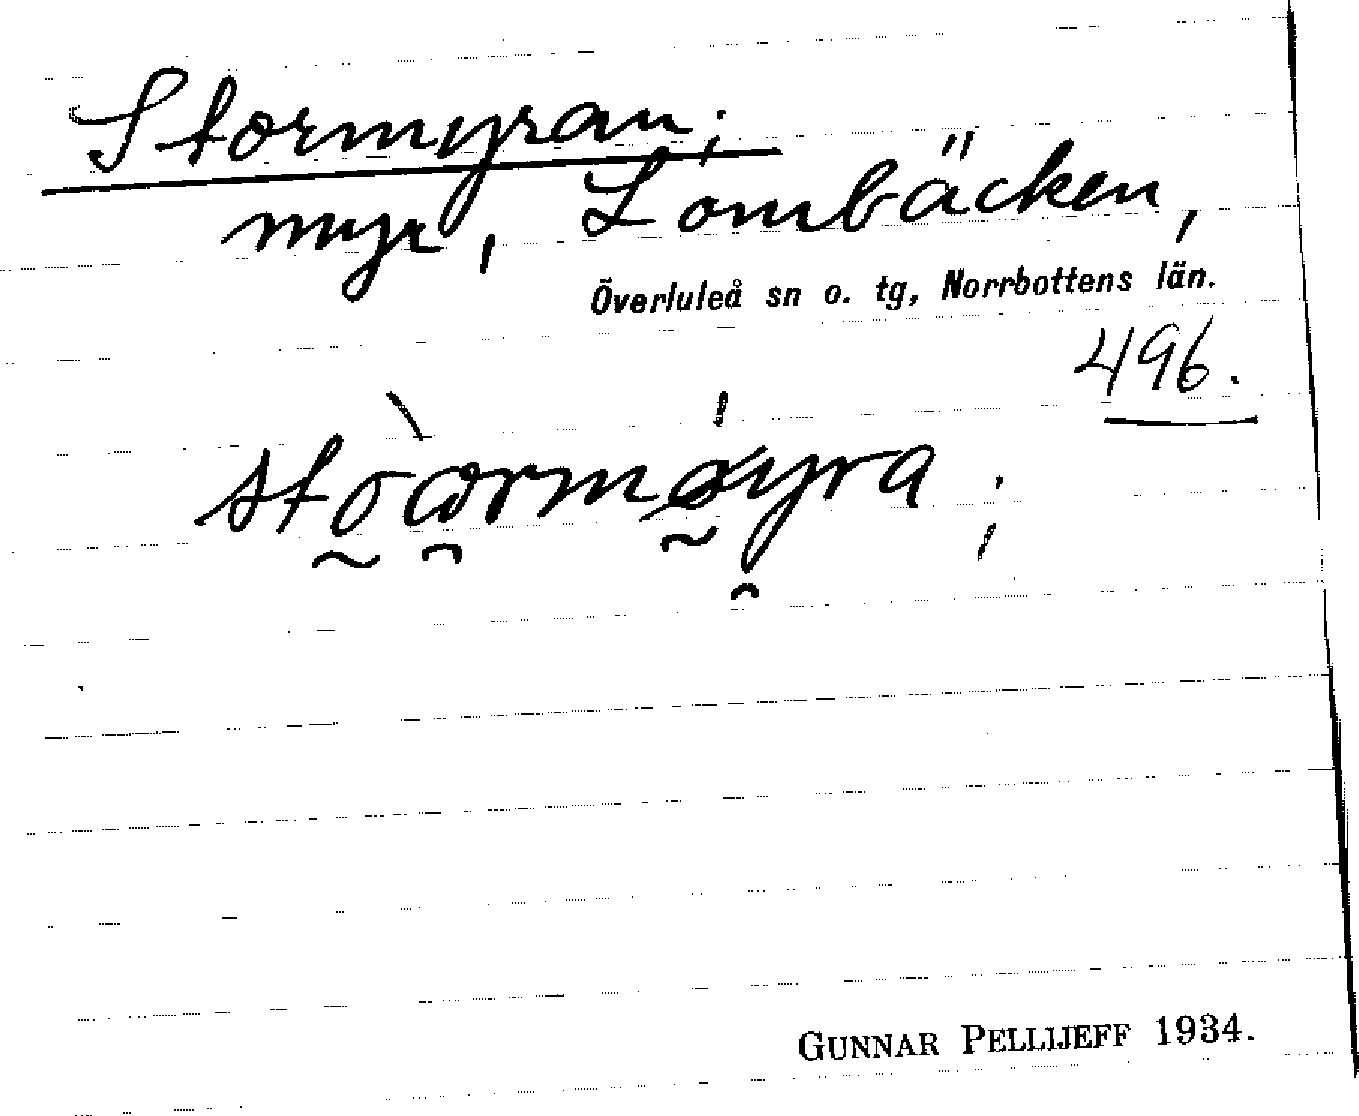 Stormyran;
myr, Lombäcken,
Överluleå sn o. tg, Norrbottens län.
496.
stòωrmǿyra;
GUNNAR PELLIJEFF 1934.